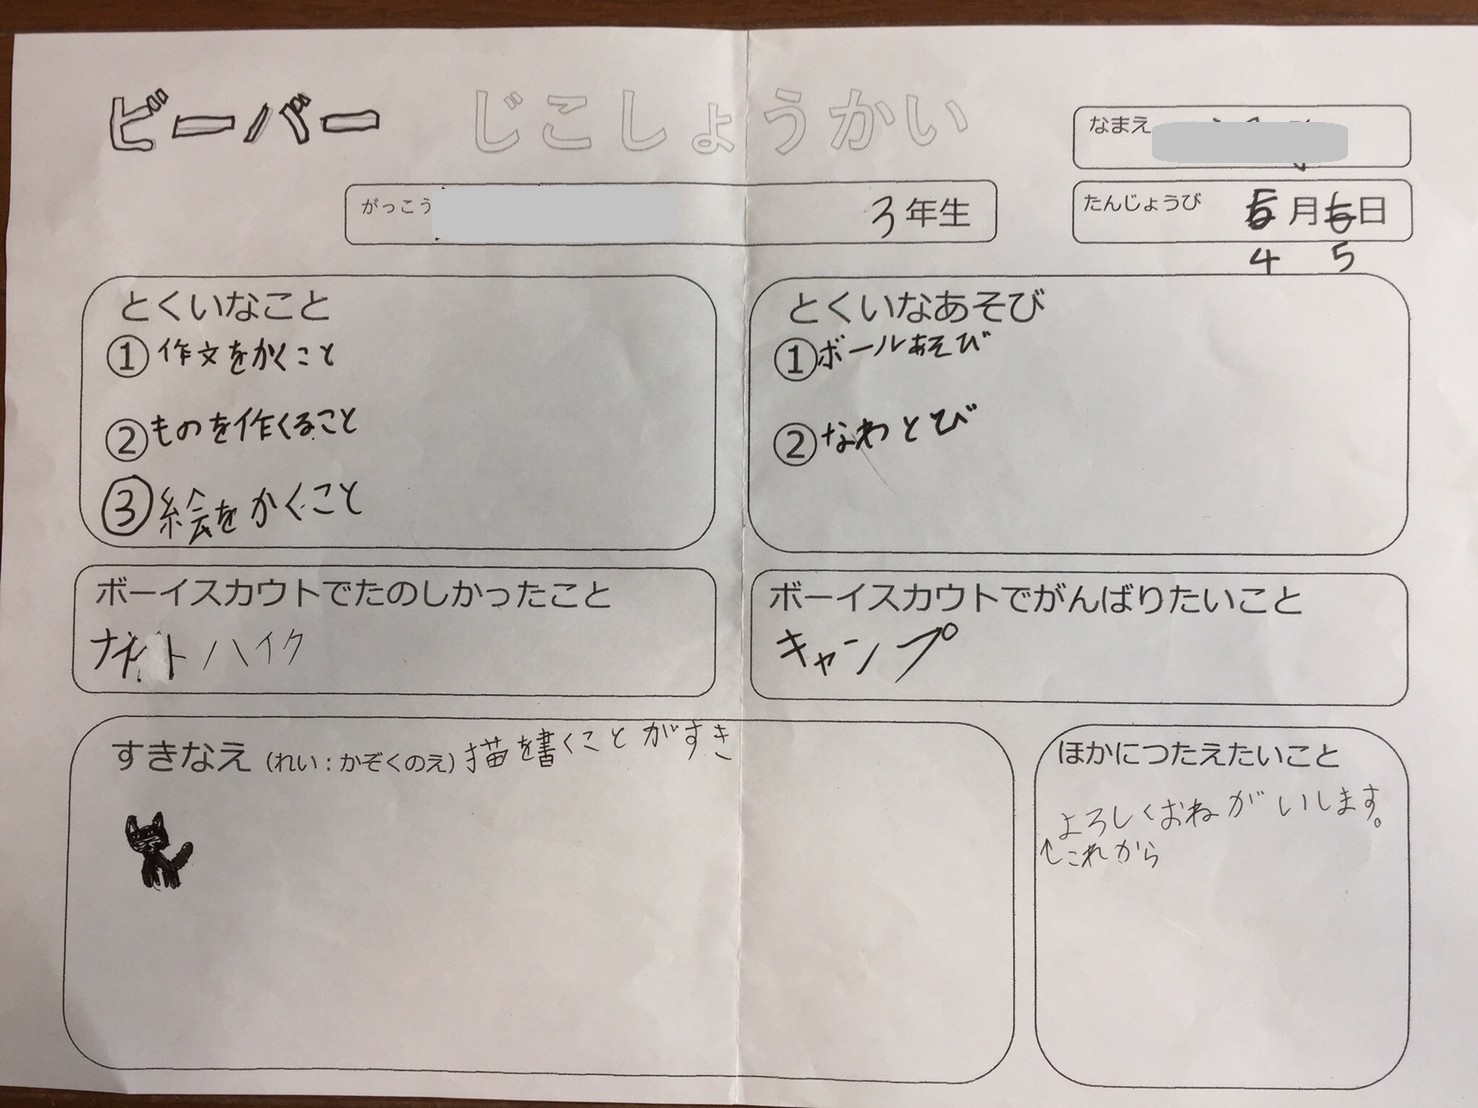 ビーバー じこしょうかい
なまえ
がっこう 3年生
たんじょうび 月 日
4 5
とくいなこと
①作文をかくこと
②ものを作くること
③絵をかくこと
とくいなあそび
①ボールあそび
②なわとび
ボーイスカウトでたのしかったこと
ナイトハイク
ボーイスカウトでがんばりたいこと
キャンプ
すきなえ(れい:かぞくのえ)描を書くことがすき
ほかにつたえたいこと
よろしくおねがいします。
↑これから